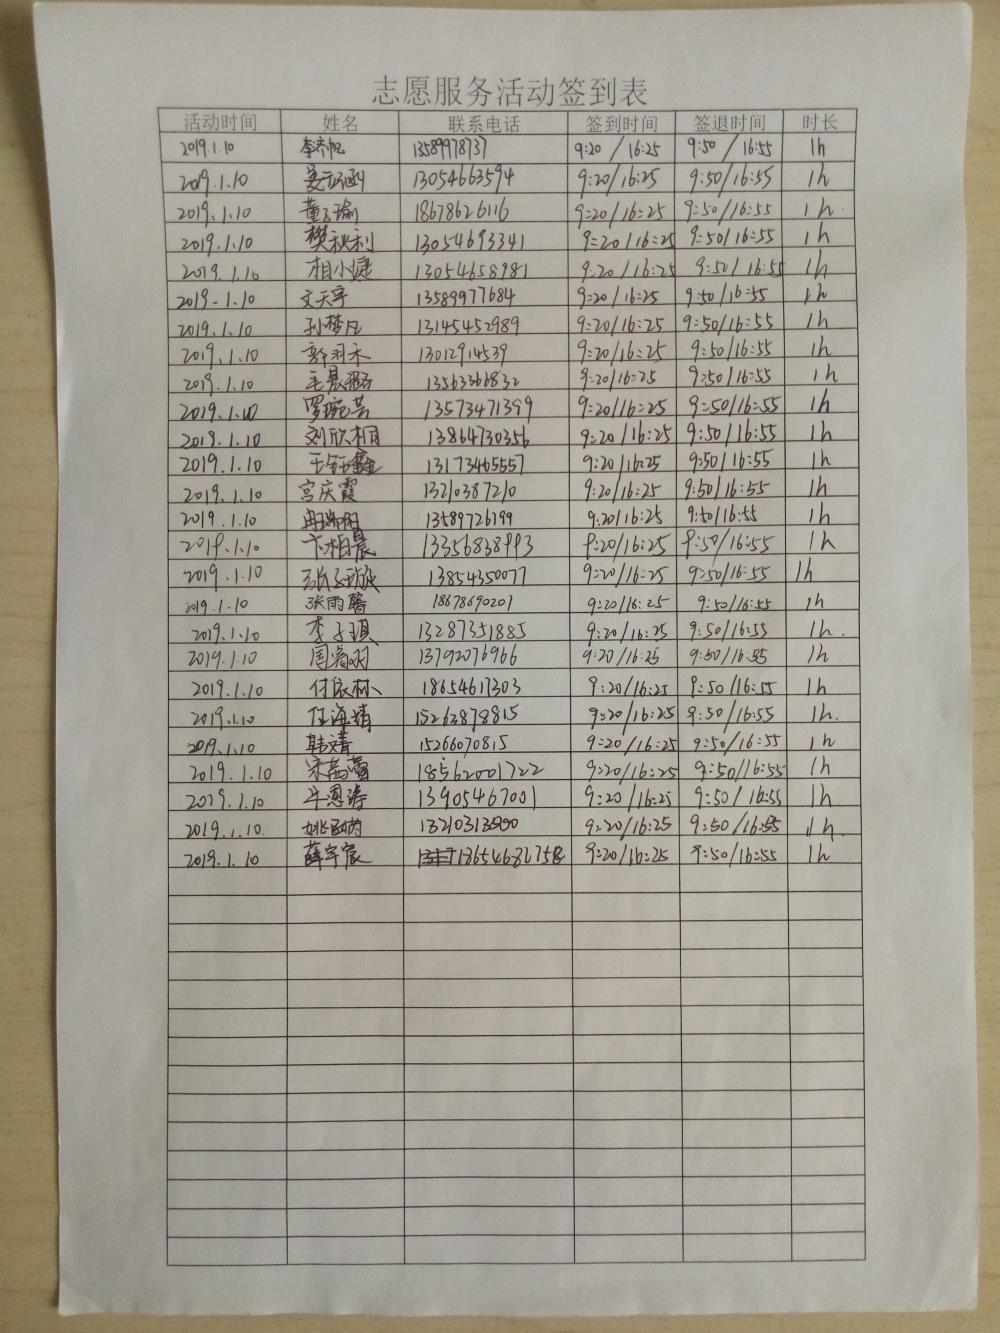 志愿服务活动签到表
活动时间 姓名 联系电话 签到时间 签退时间 时长
2019.1.10 李齐帆 13589978737 9:20/16:25 9:50/16:55 1h
2019.1.10 13054663594 9:20/16:25 9:50/16:55 1h
2019.1.10 董子瑜 18678626116 9:20/16:25 9:50/16:55 1h
2019.1.10 樊秋利 13054693341 9:20/16:25 9:50/16:55 1h
2019.1.10 相小健 13054658981 9:20/16:25 9:50/16:55 1h
2019.1.10 文天宇 13589977684 9:20/16:25 9:50/16:55 1h
2019.1.10 孙梦凡 13145452989 9:20/16:25 9:50/16:55 1h
2019.1.10 郭羽禾 13012914539 9:20/16:25 9:50/16:55 1h
2019.1.10 13563366832 9:20/16:25 9:50/16:55 1h
2019.1.10 罗琬芸 13573471399 9:20/16:25 9:50/16:55 1h
2019.1.10 刘欣桐 13864730356 9:20/16:25 9:50/16:55 1h
2019.1.10 王钰鑫 13173465557 9:20/16:25 9:50/16:55 1h
2019.1.10 宫庆霞 13210387210 9:20/16:25 9:50/16:55 1h
2019.1.10 冉瑞阳 13589726199 9:20/16:25 9:50/16:55 1h
2019.1.10 卞柏晨 13356838993 9:20/16:25 9:50/16:55 1h
2019.1.10 张子璇 13854350077 9:20/16:25 9:50/16:55 1h
2019.1.10 张雨馨 18678690201 9:20/16:25 9:50/16:55 1h
2019.1.10 李子琪 13287351885 9:20/16:25 9:50/16:55 1h.
2019.1.10 周睿羽 13792076966 9:20/16:25 9:50/16:55 1h
2019.1.10 付依林 18654617303 9:20/16:25 9:50/16:55 1h
2019.1.10 任海靖 15263878815 9:20/16:25 9:50/16:55 1h.
2019.1.10 韩文婧 15266070815 9:20/16:25 9:50/16:55 1h
2019.1.10 宋茜蕾 18562001722 9:20/16:25 9:50/16:55 1h
2019.1.10 牛恩涛 13905467001 9:20/16:25 9:50/16:55 1h
2019.1.10. 9:20/16:25 9:50/16:55 1h.
2019.1.10 薛宇宸 18654682758 9:20/16:25 9:50/16:55 1h